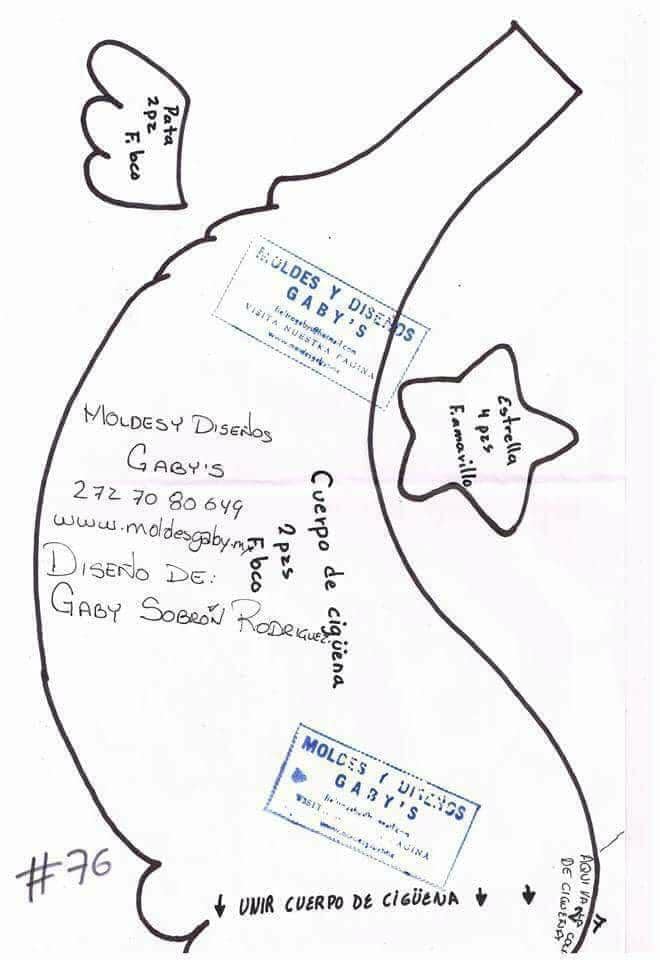 Pata
2 pz
F. bco
MOLDES Y DISEÑOS
GABY'S
helmogaby@hotmail.com
VISITA NUESTRA PAGINA
www.moldesgaby.mx
Estrella
4 pzs
F. amarillo
MOLDES Y DISEÑOS
GABY'S
272 70 80 649
www.moldesgaby.mx
DISEÑO DE:
GABY SOBRÓN RODRIGUEZ
Cuerpo de cigüena
2 pzs
F. bco
MOLDES Y DISEÑOS
GABY'S
PAGINA
#76
UNIR CUERPO DE CIGÜENA
AQUI VA
DE CIGUENA